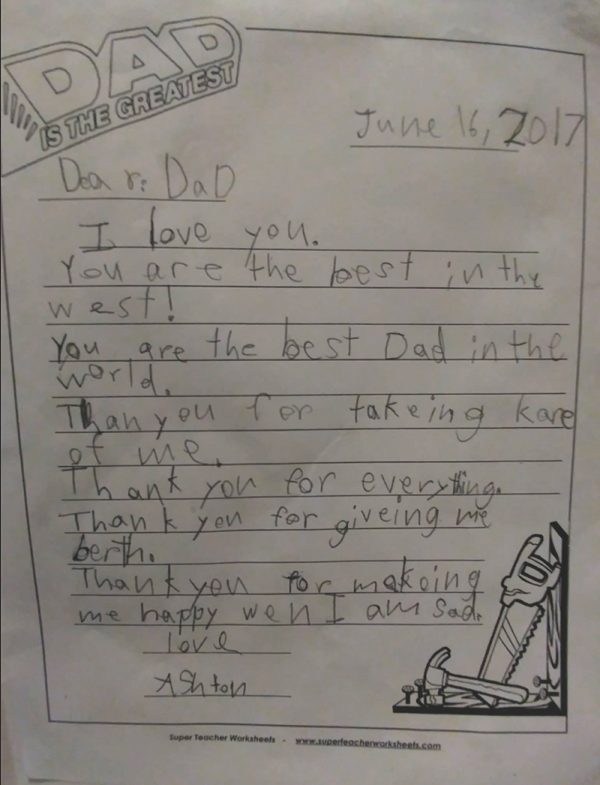 DAD
IS THE GREATEST
June 16, 2017
Dear: DaD
I love you.
You are the best in the
west!
You are the best Dad in the
world.
Than you for takeing kare
of me.
Thank you for everything.
Thank you for giveing me
berth.
Thank you for makeing
me happy wen I am sad.
love
AShton
Super Teacher Worksheets - www.superteacherworksheets.com